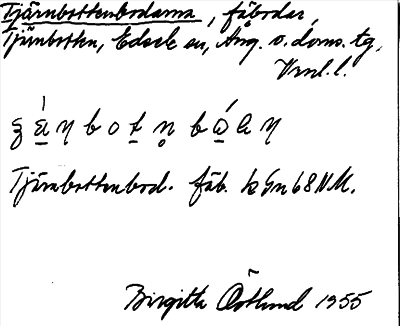 Tjärnbottenbodarna, fäbodar,
Tjärnbotten, Edsele sn, Ång. v. doms. tg,
Vrnl. l.
Tjärnbottenbod. fäb. k Gn 68 NM.
Birgitta Östlund 1955